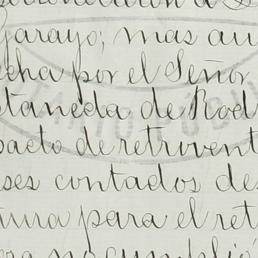 Garayo; mas au
echa por el Señor
stañeda de Rod
pacto de retrovent
ses contados des
tura para el ret
no cumplió